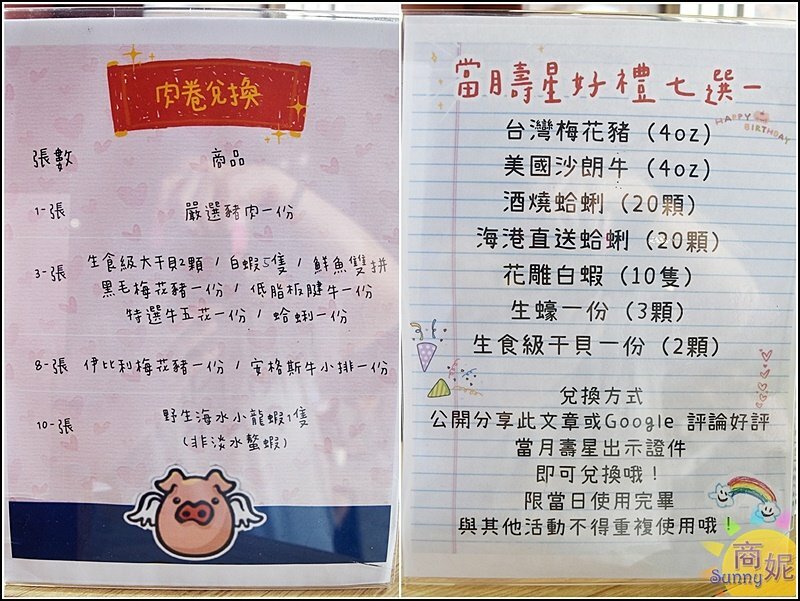 肉卷兌換
張數 商品
1-張 嚴選豬肉一份
3-張 生食級大干貝2顆 / 白蝦5隻 / 鮮魚雙拼
黑毛梅花豬一份 / 低脂板腱牛一份
特選牛五花一份 / 蛤蜊一份
8-張 伊比利梅花豬一份 / 安格斯牛小排一份
10-張 野生海水小龍蝦1隻
(非淡水螯蝦)
當月壽星好禮七選一
HAPPY BIRTHDAY
台灣梅花豬 (4oz)
美國沙朗牛 (4oz)
酒燒蛤蜊 (20顆)
海港直送蛤蜊 (20顆)
花雕白蝦 (10隻)
生蠔一份 (3顆)
生食級干貝一份 (2顆)
兌換方式
公開分享此文章或Google 評論好評
當月壽星出示證件
即可兌換哦！
限當日使用完畢
與其他活動不得重複使用哦！
商妮
Sunny